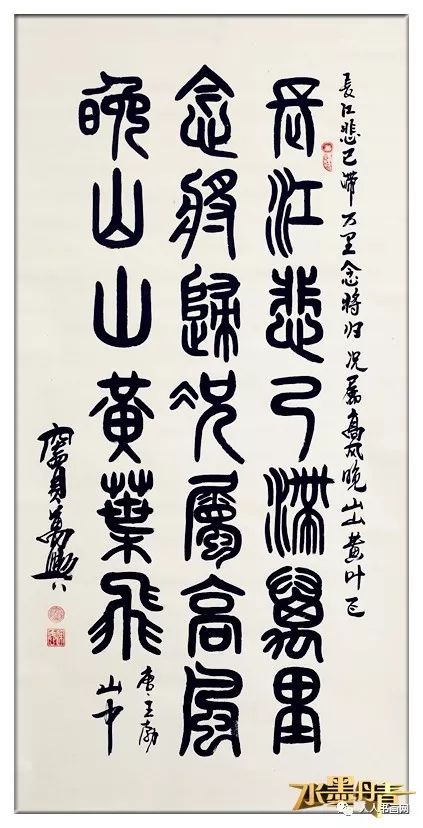 長江悲已滞万里念将归况屬高风晚山山黄叶飞
長江悲已滯萬里
念將歸況屬高風
晚山山黃葉飛
唐王勃
山中
水墨丹青
人人书画网